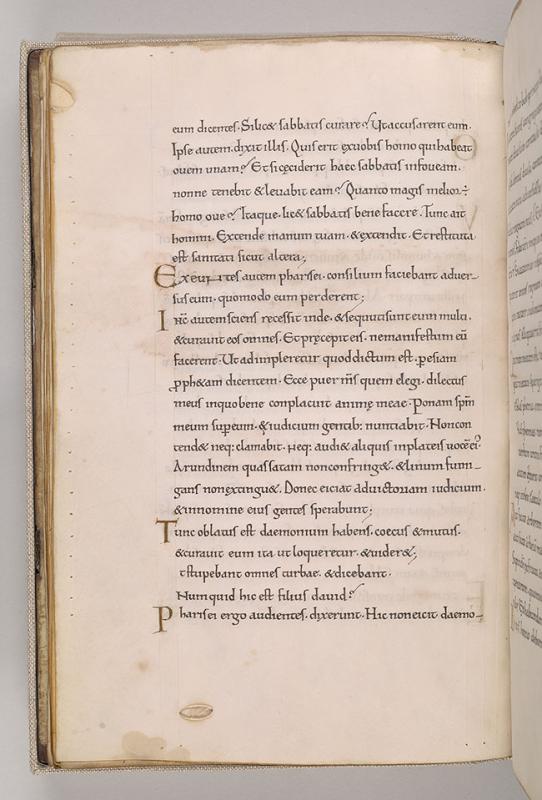 eum dicentes. Silic& sabbatis curare? Ut accusarent eum.
Ipse autem. dixit illis. Quis erit ex uobis homo qui habeat
ouem unam? Et si ceciderit haec sabbatis in foueam.
nonne tenebit & leuabit eam? Quanto magis melior ÷
homo oue? Itaque. lic& sabbatis bene facere. Tunc ait
homini. Extende manum tuam. & extendit. Et restituta
est sanitati sicut altera;
Exeuntes autem pharisei. consilium faciebant aduer-
sus eum. quomodo eum perderent;
autem sciens recessit inde. & sequuti sunt eum multi.
& curauit eos omnes. Et precepit eis. ne manifestum eū
facerent. Ut adimpleretur quod dictum est. ꝑ esaiam
ꝓph&am dicentem. Ecce puer m̄s quem elegi. dilectus
meus in quo bene conplacuit animę meae. Ponam sp̄m
meum super eum. & iudicium gentib: nuntiabit. Non con
tend& neq: clamabit. neq: audi& aliquis in plateis uocē ei'
Arundinem quassatam non confring&. & linum fumi-
gans non extingu&. Donec eiciat ad uictoriam iudicium.
& in nomine eius gentes sperabunt;
Tunc oblatus est daemonium habens. coecus & mutus.
& curauit eum ita ut loqueretur. & uider&;
t stupebant omnes turbae. & dicebant.
Numquid hic est filius dauid?
Pharisei ergo audientes. dixerunt. Hic non eicit daemo-